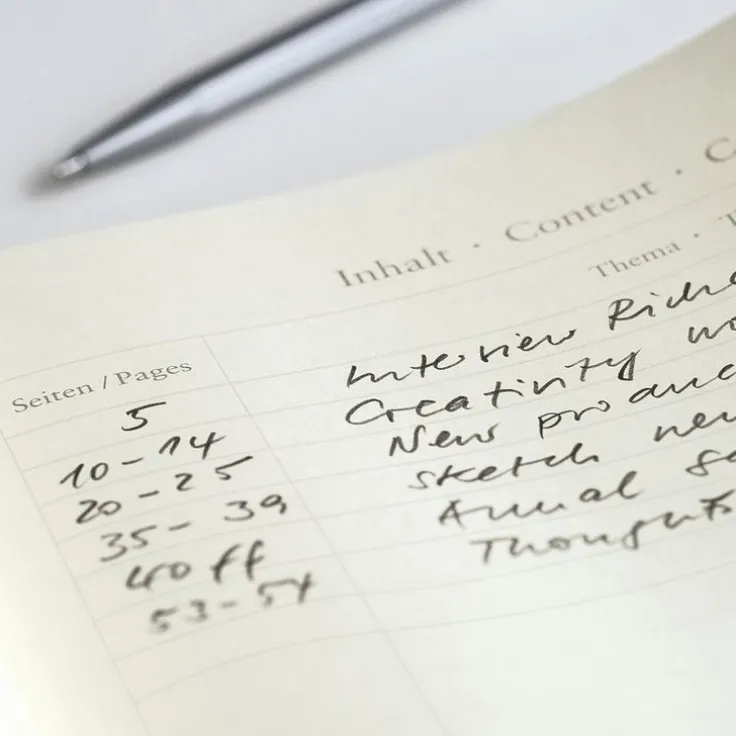 Inhalt · Content ·
Thema ·
Seiten / Pages
5 Interview
10-14 Creativity
20-25 New
35-39 sketch
40 ff Annual
53-54 Thoughts